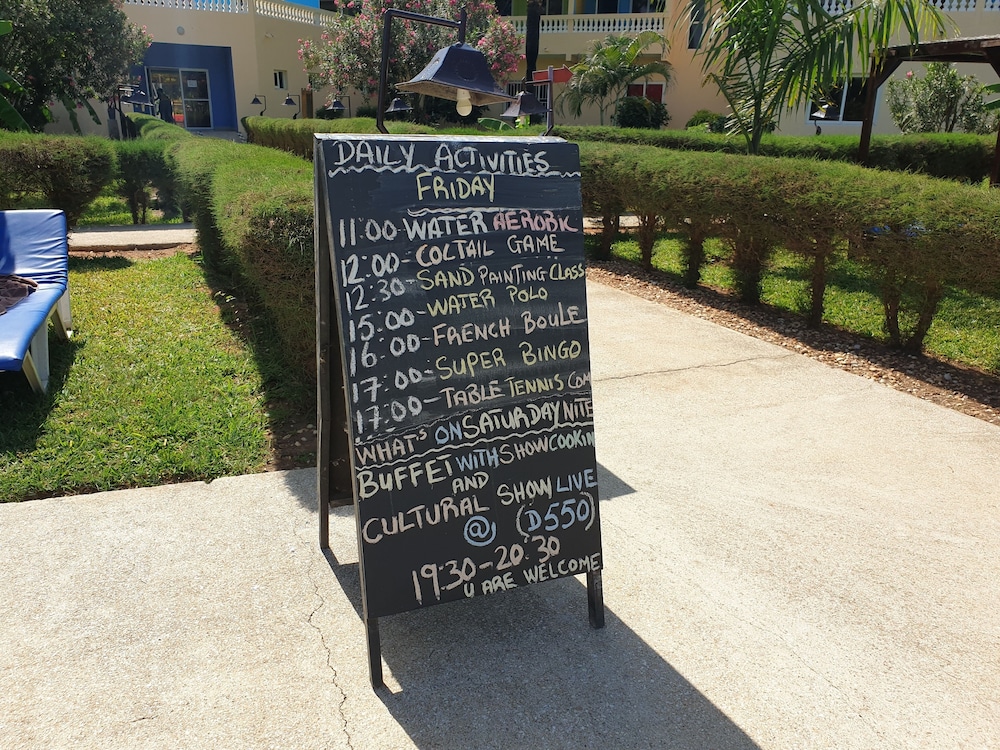 DAILY ACTIVITIES
FRIDAY
11:00-WATER AEROBIC
12:00-COCTAIL GAME
12:30-SAND PAINTING CLASS
15:00-WATER POLO
16:00-FRENCH BOULE
17:00-SUPER BINGO
17:00-TABLE TENNIS COM
WHAT'S ON SATURDAY NITE
BUFFET WITH SHOW COOKIN
AND
CULTURAL SHOW LIVE
@ (D550)
19:30-20:30
U ARE WELCOME